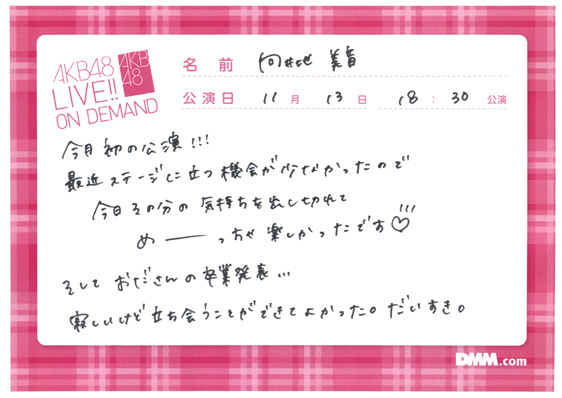 AKB48
LIVE!!
ON DEMAND
AKB
48
名前 向井地 美音
公演日 11月 13日 18:30 公演
今月初の公演!!!
最近ステージに立つ機会が少なかったので
今日その分の気持ちを出し切れて
めーーっちゃ楽しかったです♡!!!
そして おださんの卒業発表...
寂しいけど立ち会うことができてよかった。だいすき。
DMM.com